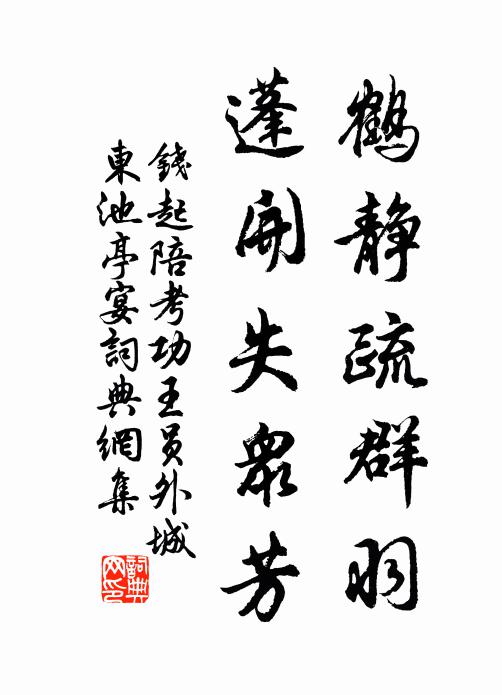 鶴静疏群羽
蓬開失衆芳
錢起陪考功王员外城
東池亭宴詞典網集
詞典网印